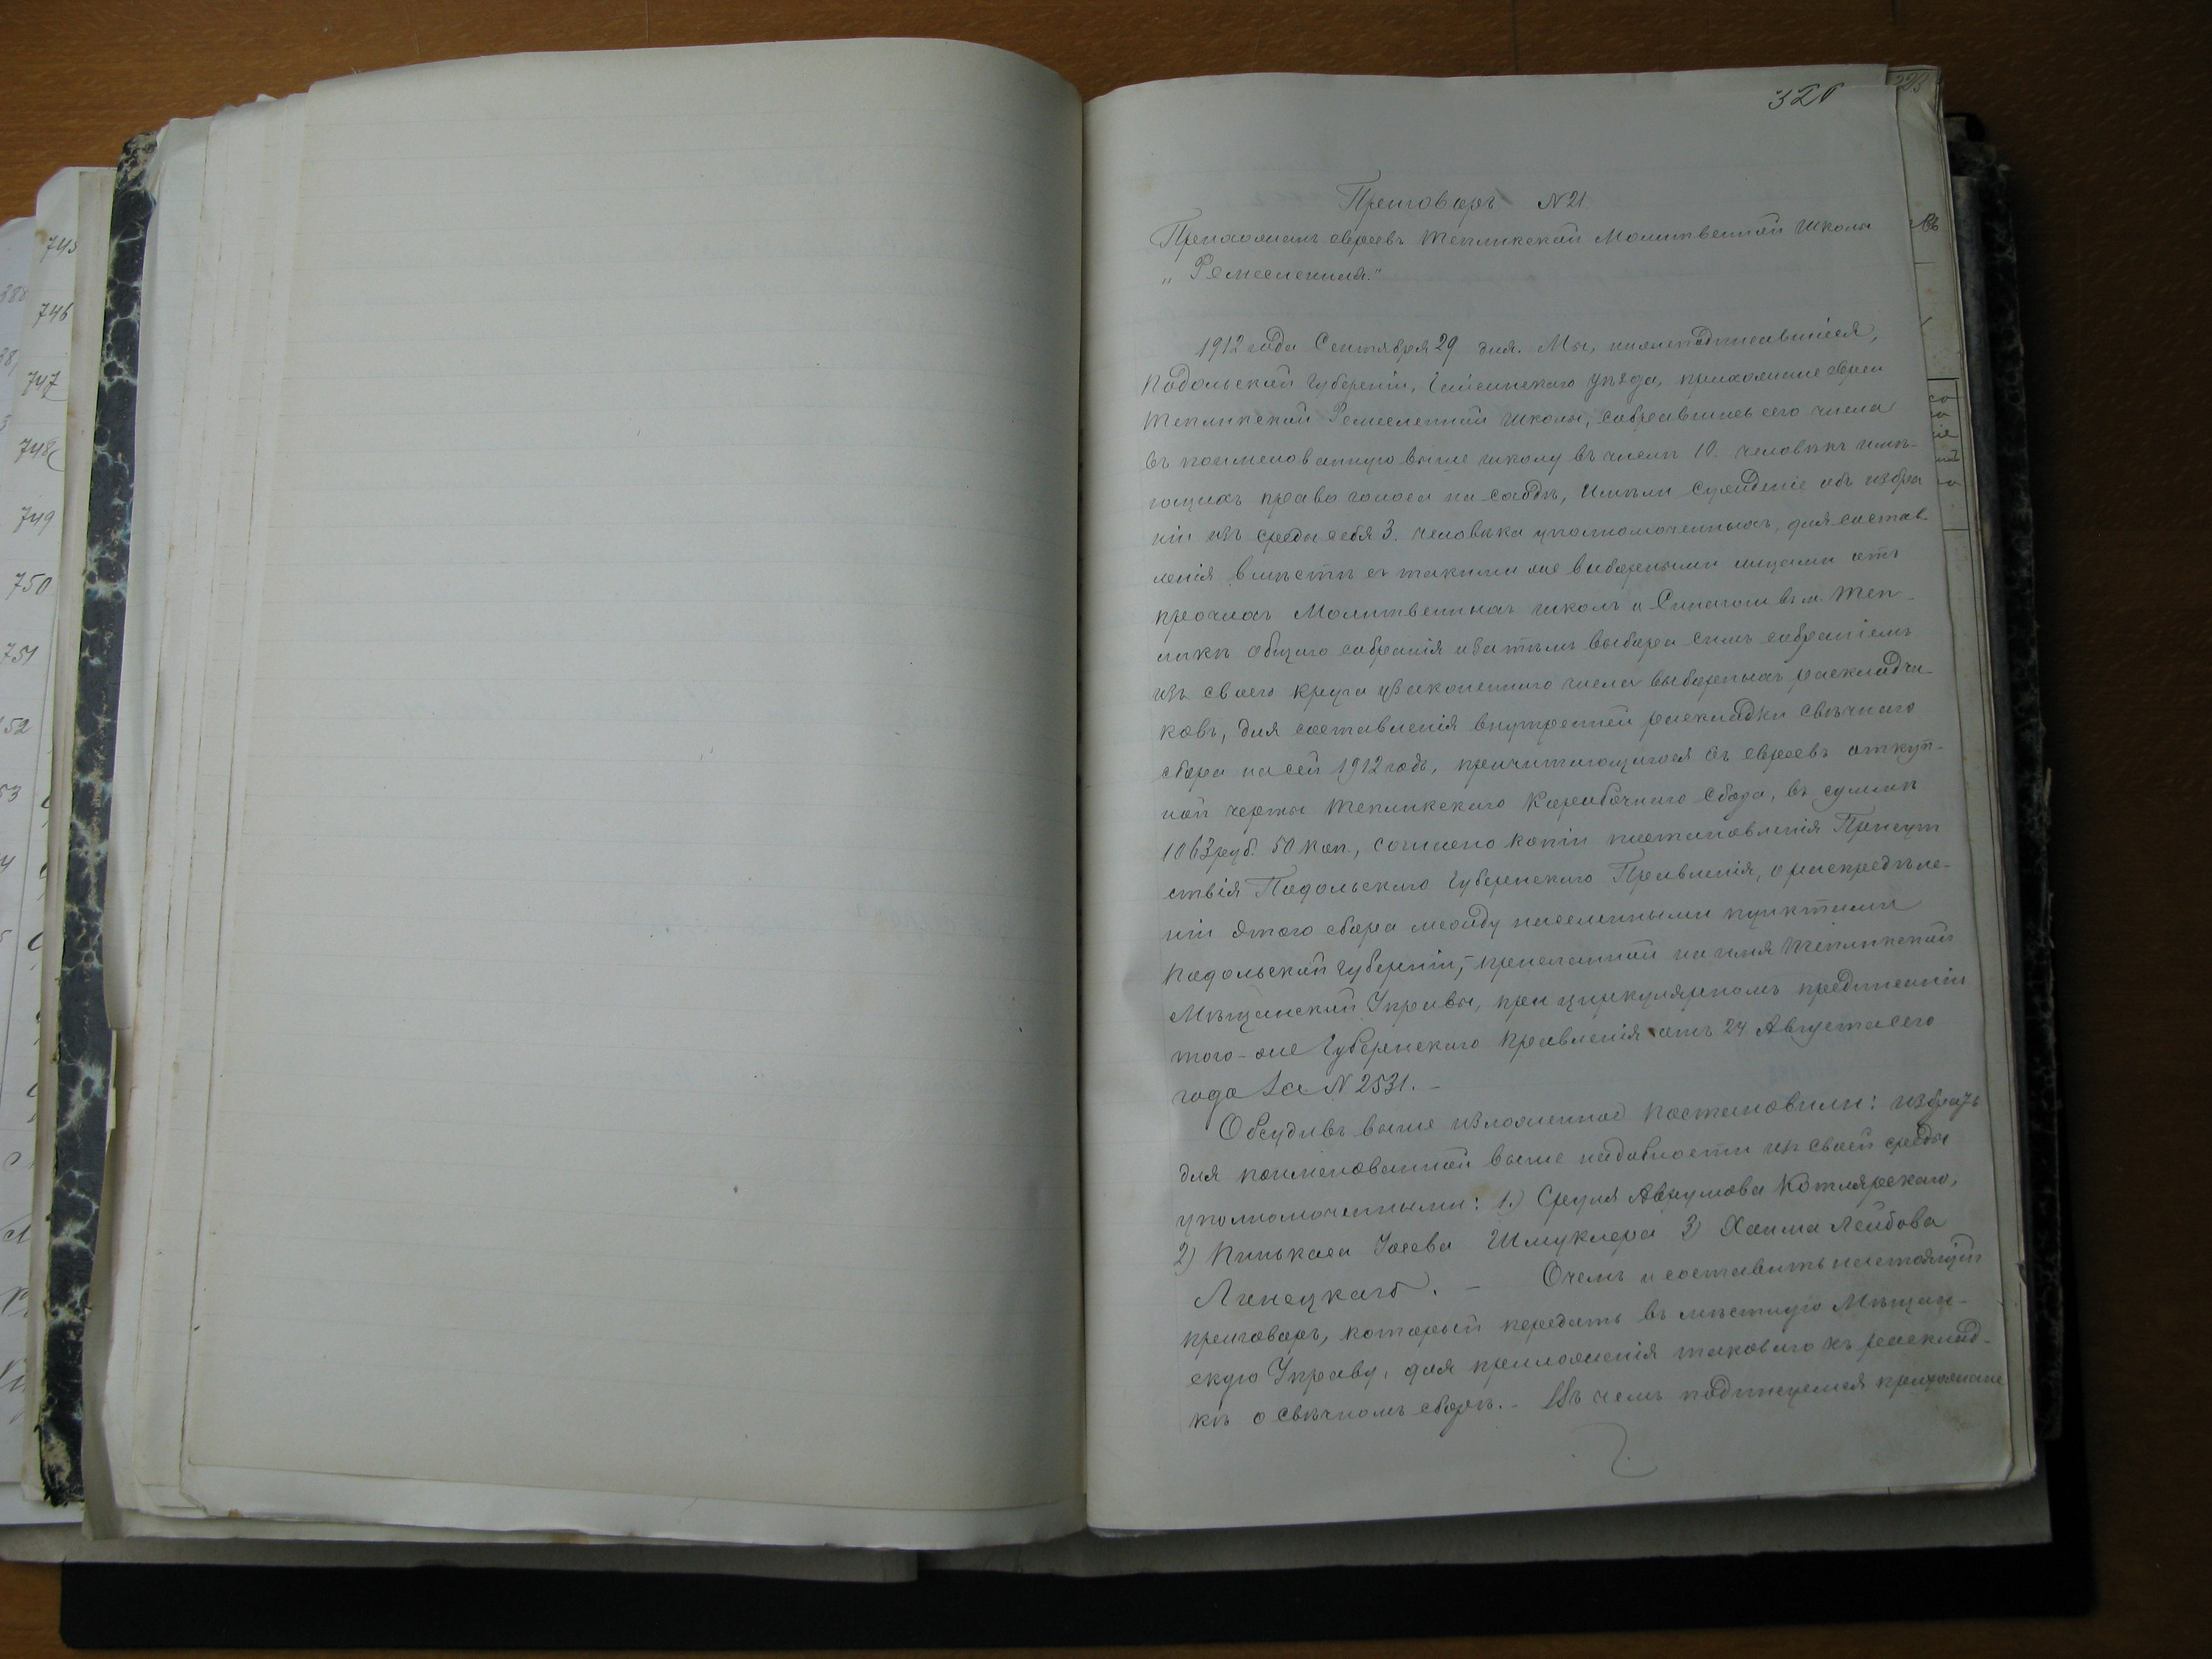 745
746
747
748
749
750
751
52
53
320
Приговоръ N 21
Прихожанъ евреевъ Тепликской Молитвенной Школы
„Ремесленная."
1912 года Сентября 29 дня. Мы, нижеподписавшіеся,
Подольской Губерніи, Гайсинскаго уѣзда, прихожане евреи
Тепликской Ремесленной школы, собравшись сего числа
въ поименованную выше школу въ числѣ 10. человѣкъ имѣ-
ющихъ право голоса на сходѣ, имѣли сужденіе объ избра
ніи изъ среды себя 3. человѣка уполномоченныхъ, для состав-
ленія вмѣстѣ съ такими же выборными лицами отъ
прочихъ Молитвенныхъ школъ и Синагоги въ м. Теп-
ликѣ общаго собранія и затѣмъ выбора симъ собраніемъ
изъ своего круга узаконеннаго числа выборныхъ раскладчи-
ковъ, для составленія внутренней раскладки свѣчнаго
сбора на сей 1912 годъ, причитающагося съ евреевъ откуп-
ной черты Тепликскаго Коробочнаго Сбора, въ суммѣ
1063 руб. 50 коп., согласно копіи постановленія Присут
ствія Подольскаго Губернскаго Правленія, о распредѣле-
ніи этого сбора между населенными пунктами
Подольской Губерніи, присланной на имя Тепликской
Мѣщанской Управы, при циркулярномъ предписаніи
того-же Губернскаго Правленія отъ 24 Августа сего
года за N 2531. —
Обсудивъ выше изложенное постановили: избрать
для поименованной выше надобности изъ своей среды
уполномоченными: 1.) Сруля Аврумова Котлярскаго,
2) Пинькаса Іосева Шмуклера 3) Хаима Лейбова
Линецкаго. — Очемъ и составить настоящій
приговоръ, который передать въ мѣстную Мѣщан-
скую Управу, для приложенія таковаго къ расклад-
кѣ о свѣчномъ сборѣ. — Въ чемъ подписуемся прихожане